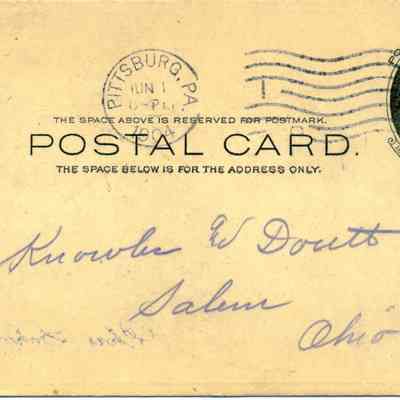 PITTSBURG, PA.
JUN 1
1904
THE SPACE ABOVE IS RESERVED FOR POSTMARK.
POSTAL CARD.
THE SPACE BELOW IS FOR THE ADDRESS ONLY.
Knowles W Doutt
Salem
Ohio